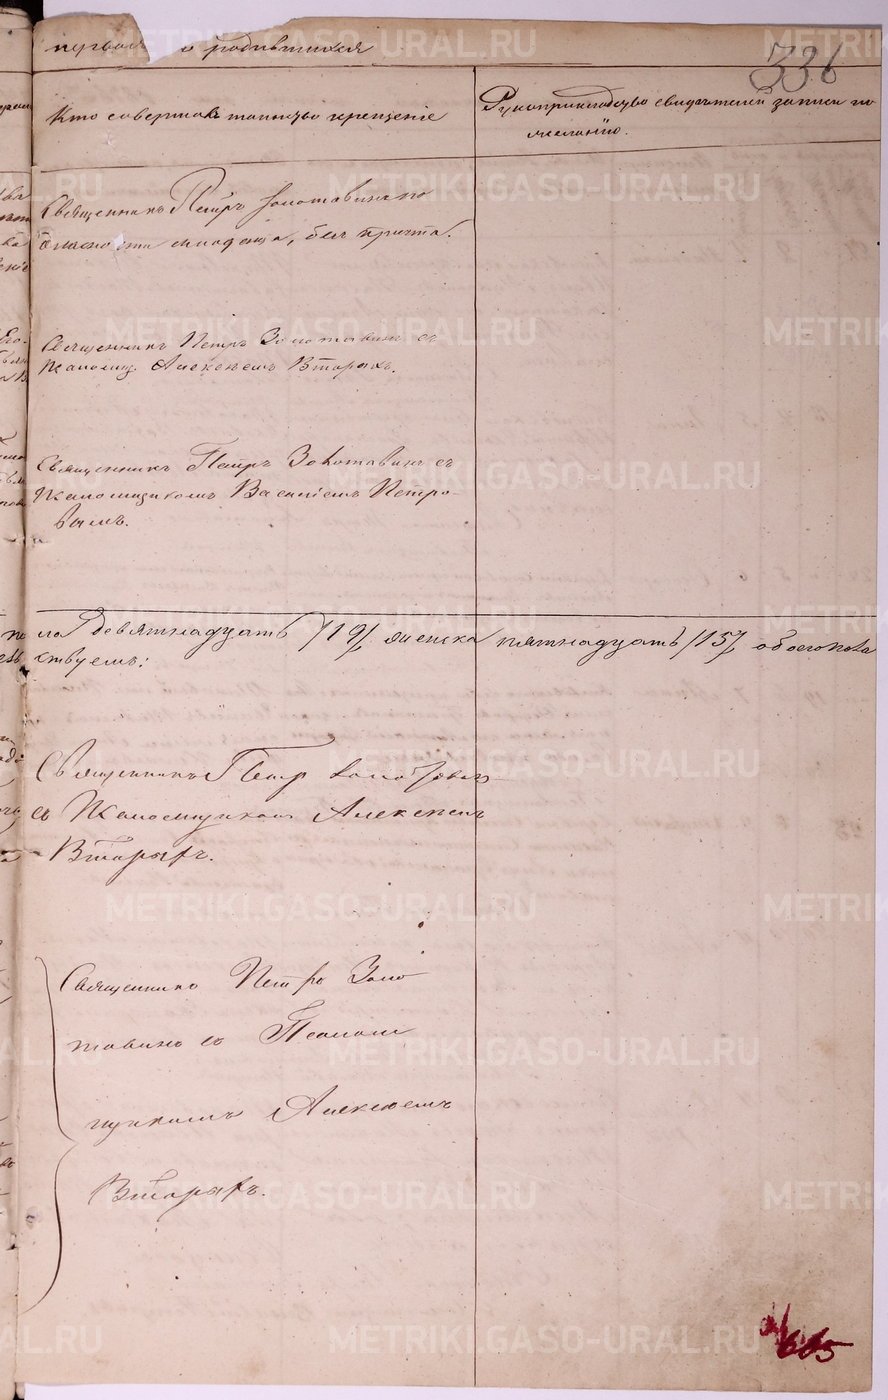 первая о родившихся
336
Кто совершалъ таинство крещенiе
Рукоприкладство свидѣтелей записи по
желанiю.
Священникъ Петръ Золотавинъ по
опасности младенца, безъ причта.
Священникъ Петръ Золотавинъ съ
Псаломщ. Алексѣемъ Вторыхъ.
Священникъ Петръ Золотавинъ съ
Псаломщикомъ Василiемъ Петро-
вымъ.
ла девятнадцать /19/ женска пятнадцать /15/ обоего пола
ствуемъ:
Священникъ Петръ Золотавинъ
съ Псаломщикомъ Алексѣемъ
Вторыхъ.
Священникъ Петръ Золо
тавинъ съ Псалом
щикомъ Алексѣемъ
Вторыхъ.
METRIKI.GASO-URAL.RU